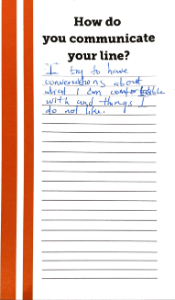 How do
you communicate
your line?
I try to have
conversations about
what I am comfortable
with and things I
do not like.